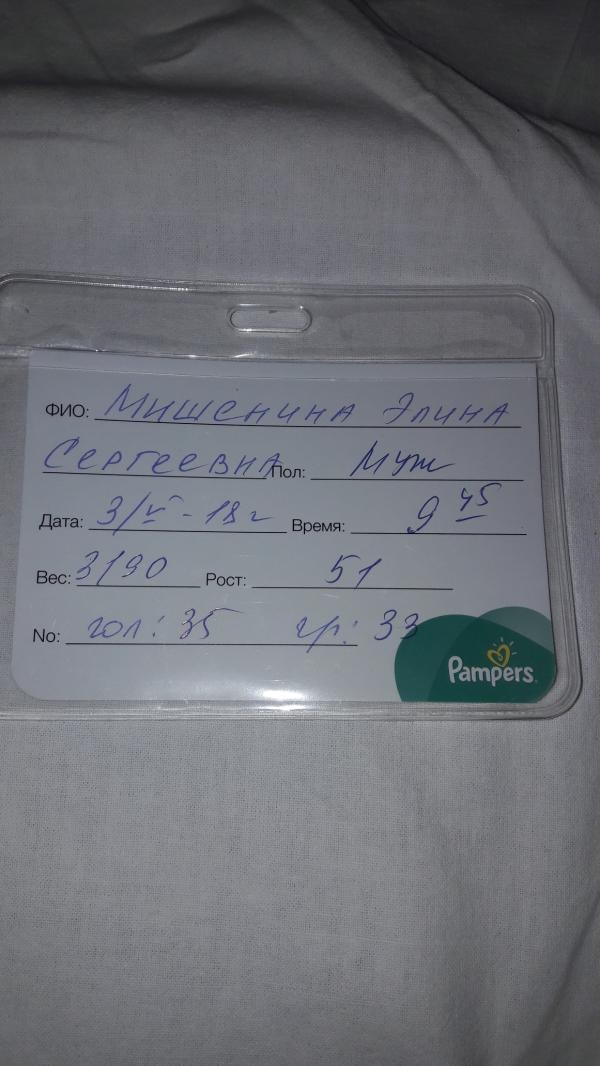 ФИО: Мишенина Элина
Сергеевна Пол: Муж
Дата: 3/V - 18 г Время: 9 45
Вес: 3190 Рост: 51
No: гол: 35 гр: 33
Pampers